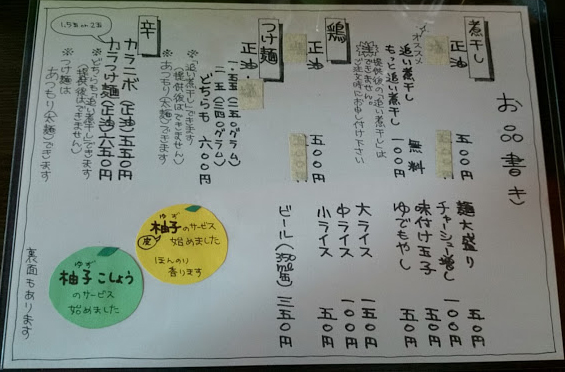 お品書き
煮干し
正油 五〇〇円
オススメ
追い煮干し 無料
もっと追い煮干し 一〇〇円
提供後の「追い煮干し」は
できません。
ご注文時にお申し付け下さい
鶏
正油 五〇〇円
つけ麺
正油
一・五玉(二五〇グラム)
二玉(三四〇グラム)
どちらも 六〇〇円
※「追い煮干し」できます
(提供後はできません)
※あつもり(太麺)できます
辛
1.5玉 or 2玉
カラニボ(正油)五五〇円
カラつけ麺(正油)六五〇円
※どちらも「追い煮干し」できます
(提供後はできません)
※つけ麺は
あつもり(太麺)できます
麺大盛り 五〇円
チャーシュー増し 一〇〇円
味付け玉子 五〇円
ゆでもやし 五〇円
大ライス 一五〇円
中ライス 一〇〇円
小ライス 五〇円
ビール(350缶) 三五〇円
ゆず
柚子のサービス
皮
始めました
ほんのり
香ります
ゆず
柚子こしょう
のサービス
始めました
裏面もあります